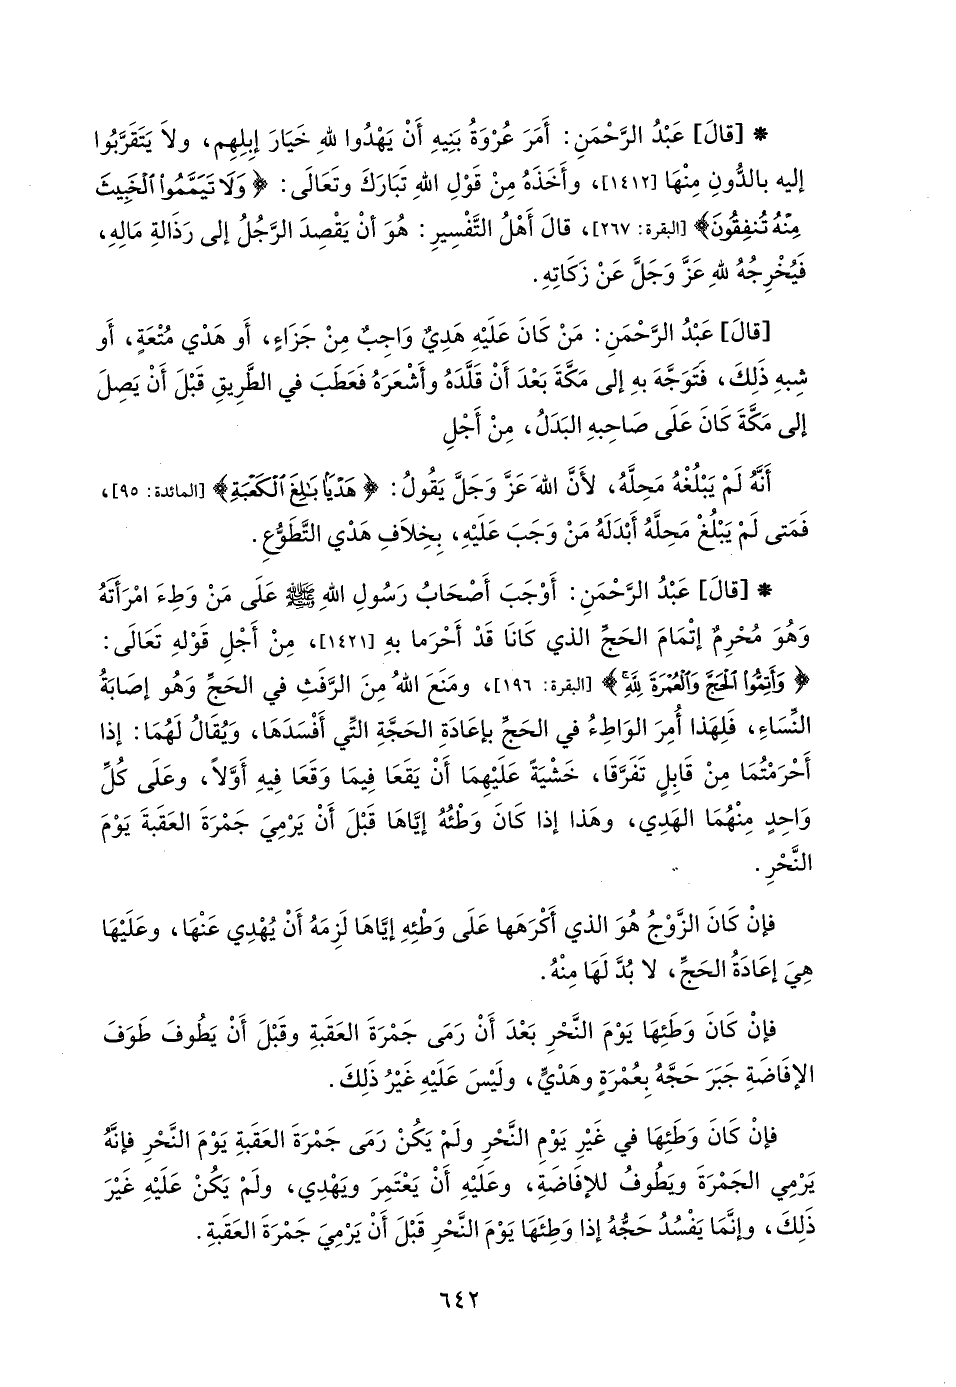 * [قالَ] عَبْدُ الرَّحْمَنِ: أَمَرَ عُرْوَةُ بَنِيهِ أَنْ يَهْدُوا للهِ خَيَارَ إِبلِهِم، ولاَ يَتَقَرَّبُوا
إليه بالدُّونِ مِنْهَا [١٤١٢]، وأَخَذَهُ مِنْ قَوْلِ اللهِ تَبَارَكَ وتَعَالَى: ﴿وَلَا تَيَمَّمُوا۟ ٱلْخَبِيثَ
مِنْهُ تُنفِقُونَ﴾ [البقرة: ٢٦٧]، قالَ أَهْلُ التَّفْسِيرِ: هُوَ أنْ يَقْصِدَ الرَّجُلُ إلى رَذَالةِ مَالِهِ،
فَيُخْرِجُهُ للهِ عَزَّ وَجَلَّ عَنْ زَكَاتِهِ.
[قالَ] عَبْدُ الرَّحْمَنِ: مَنْ كَانَ عَلَيْهِ هَدِيٌ وَاجِبٌ مِنْ جَزَاءٍ، أَو هَدْي مُتْعَةٍ، أَو
شِبهِ ذَلِكَ، فَتَوَجَّهَ بهِ إلى مَكَّةَ بَعْدَ أَنْ قلَّدَهُ وأَشْعَرَهُ فَعَطَبَ في الطَّرِيقِ قَبْلَ أَنْ يَصِلَ
إلى مَكَّةَ كَانَ عَلَى صَاحِبهِ البَدَلُ، مِنْ أَجْلِ
أَنَّهُ لَمْ يَبْلُغْهُ مَحِلَّهُ، لأَنَّ اللهَ عَزَّ وَجَلَّ يَقُولُ: ﴿هَدْيًۢا بَـٰلِغَ ٱلْكَعْبَةِ﴾ [المائدة: ٩٥]،
فَمَتى لَمْ يَبْلُغْ مَحِلَّهُ أَبْدَلَهُ مَنْ وَجَبَ عَلَيْهِ، بِخِلاَفِ هَدْي التَّطَوُّعِ.
* [قالَ] عَبْدُ الرَّحْمَنِ: أَوْجَبَ أَصْحَابُ رَسُولِ اللهِ ﷺ عَلَى مَنْ وَطِءَ امْرَأَتَهُ
وَهُوَ مُحْرِمٌ إتْمَامَ الحَجِّ الذي كَانَا قَدْ أَحْرَما بهِ [١٤٢١]، مِنْ أَجْلِ قَوْلهِ تَعَالَى:
﴿وَأَتِمُّوا۟ ٱلْحَجَّ وَٱلْعُمْرَةَ لِلَّهِ﴾ [البقرة: ١٩٦]، ومَنَعَ اللهُ مِنَ الرَّفَثِ في الحَجِّ وَهُو إصَابَةُ
النِّسَاءِ، فَلِهَذا أُمِرَ الوَاطِءُ في الحَجِّ بإعَادَةِ الحَجَّةِ التِّي أَفْسَدَهَا، ويُقَالُ لَهُمَا: إذا
أَحْرَمْتُمَا مِنْ قَابِلٍ تَفَرَّقَا، خَشْيَةً عَلَيْهِمَا أَنْ يَقَعَا فِيمَا وَقَعَا فِيهِ أَوَّلاً، وعَلَى كُلِّ
وَاحِدٍ مِنْهُمَا الهَدِي، وهَذا إذا كَانَ وَطْئُهُ إيَّاها قَبْلَ أَنْ يَرْمِيَ جَمْرَةَ العَقَبةَ يَوْمَ
النَّحْرِ.
فإنْ كَانَ الزَّوْجُ هُوَ الذي أَكْرَهَها عَلَى وَطْئِهِ إيَّاها لَزِمَهُ أَنْ يُهْدِي عَنْهَا، وعَلَيْهَا
هِيَ إعَادَةُ الحَجِّ، لا بُدَّ لَهَا مِنْهُ.
فإنْ كَانَ وَطِئِهَا يَوْمَ النَّحْرِ بَعْدَ أَنْ رَمَى جَمْرَةَ العَقَبةِ وقَبْلَ أَنْ يَطُوفَ طَوَفَ
الإفَاضَةِ جَبَرَ حَجَّهُ بِعُمْرَةٍ وهَدْيٍّ، ولَيْسَ عَلَيْهِ غَيْرُ ذَلِكَ.
فإنْ كَانَ وَطِئِهَا في غَيْرِ يَوْمِ النَّحْرِ ولَمْ يَكُنْ رَمَى جَمْرَةَ العَقَبةِ يَوْمَ النَّحْرِ فإنَّهُ
يَرْمِي الجَمْرَةَ ويَطُوفُ للإفَاضَةِ، وعَلَيْهِ أَنْ يَعْتَمِرَ ويَهْدِي، ولَمْ يَكُنْ عَلَيْهِ غَيْرَ
ذَلِكَ، وإنَّمَا يَفْسُدُ حَجُّهُ إذا وَطِئَهَا يَوْمَ النَّحْرِ قَبْلَ أَنْ يَرْمِيَ جَمْرَةَ العَقَبةِ.
٦٤٢